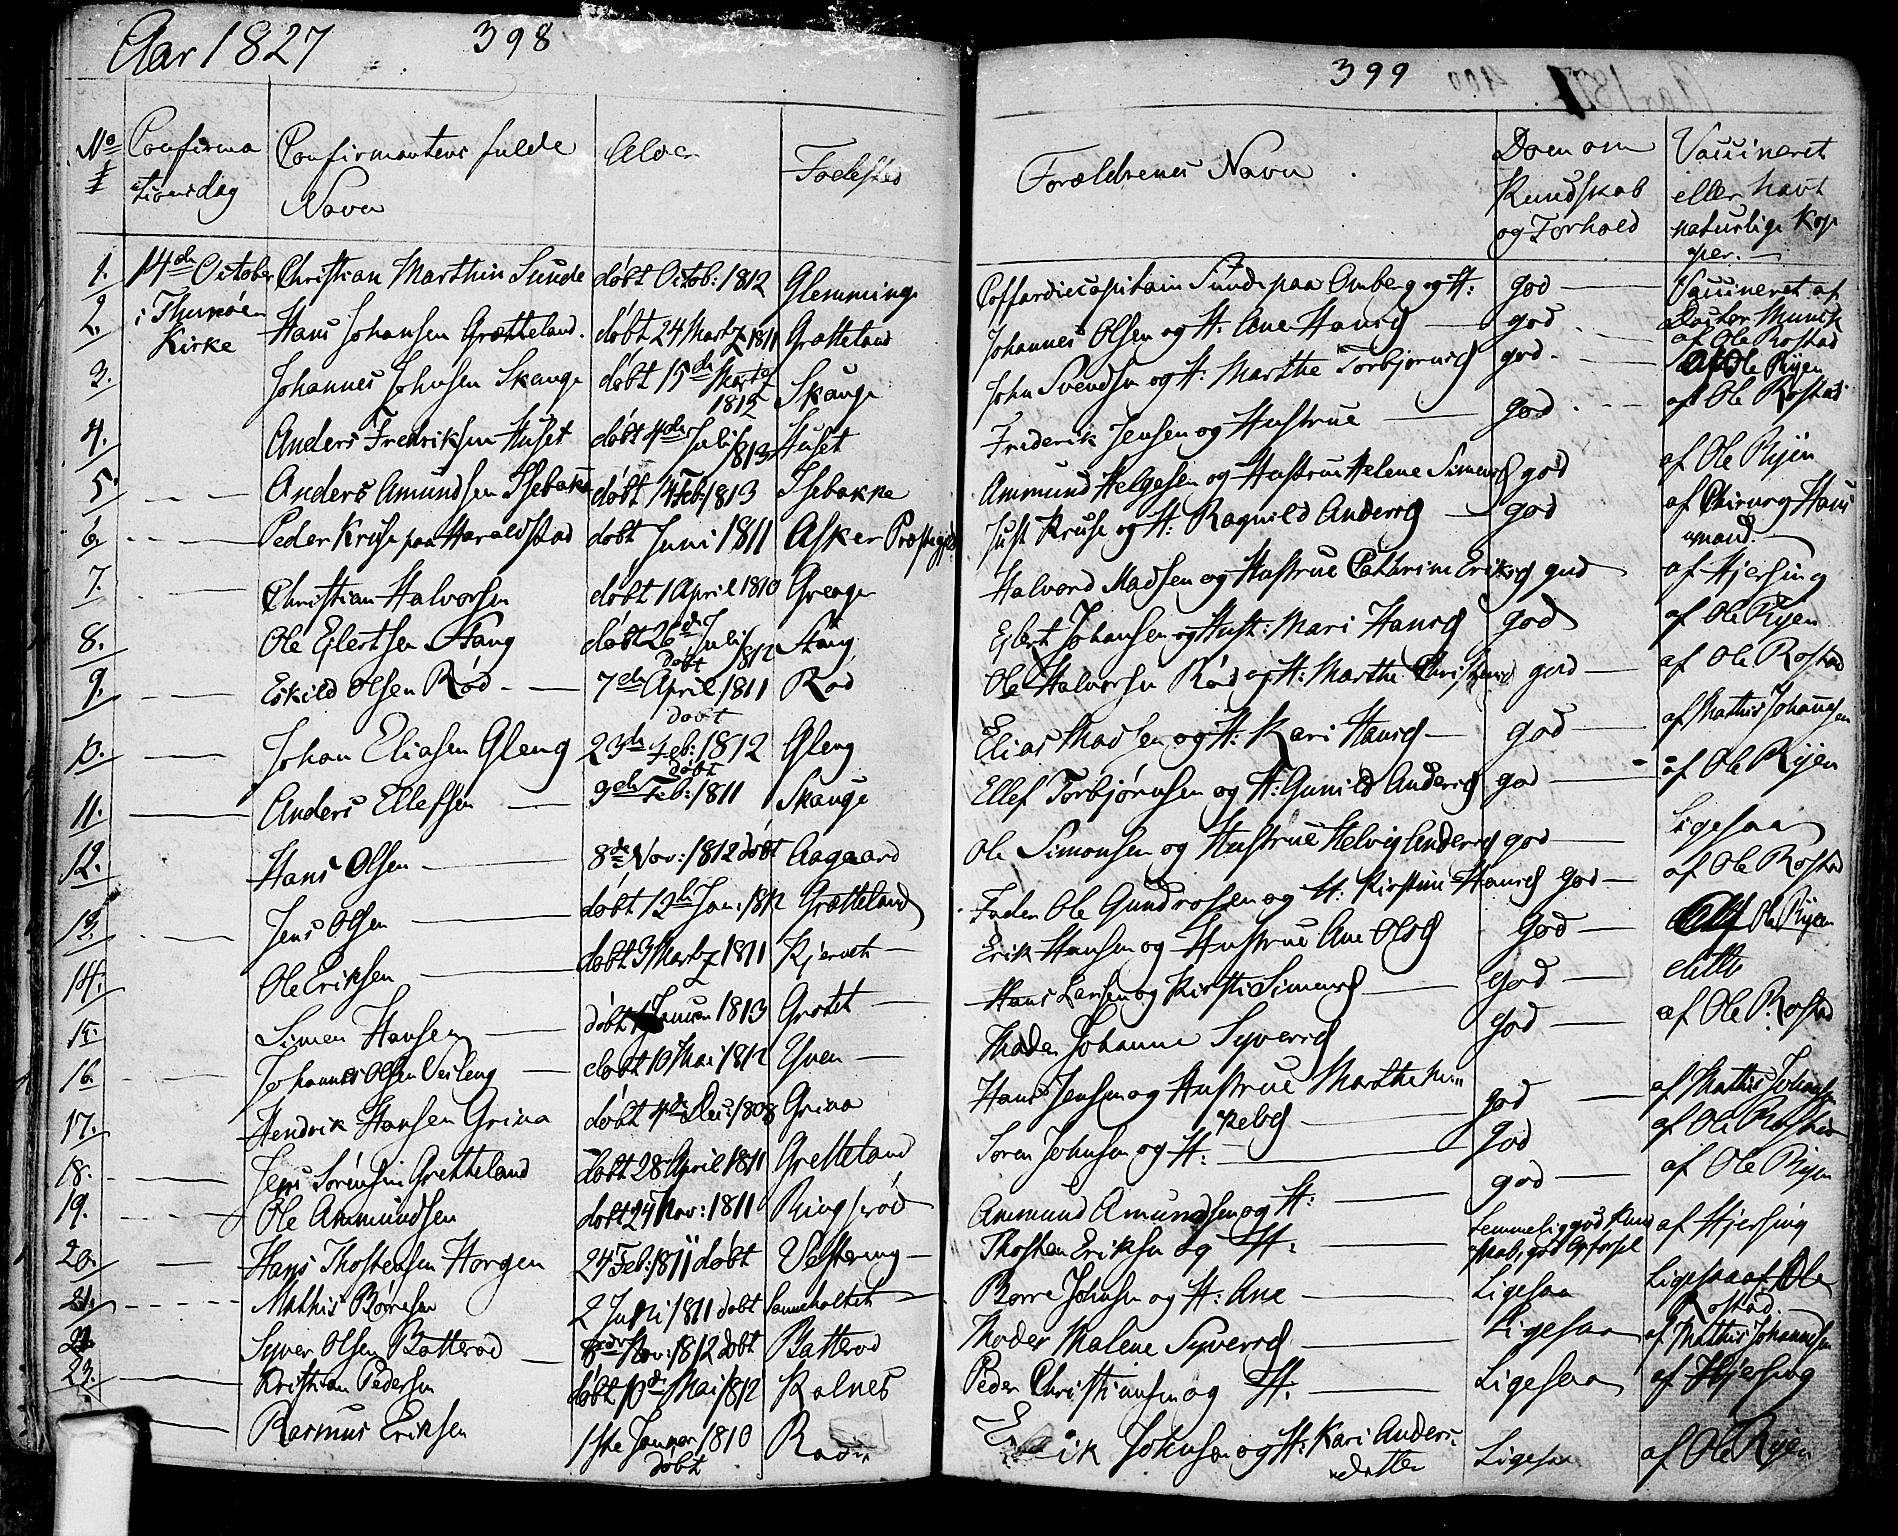 Aar 1827 398
No Confirmationsdag Confirmantens fulde Navn Alder Fødested
1. 14de October Christian Marthin Sunde døbt Octob: 1812 Glemminge
2. i Thunøen Hans Johansen Grætteland. døbt 24 Martz 1811 Grætteland
Kirke
3. Johannes Johnsen Skauge døbt 15de Martz 1812 Skauge
4. Anders Fredriksen Huset døbt 4de Juli 1813 Huset
5. Anders Amundsen Isebakke døbt 14 Feb: 1813 Isebakke
6. Peder Kruse paa Haraldstad døbt Juni 1811 Asker Præstegjeld
7. Christian Halvorsen døbt 1 April 1810 Greager
8. Ole Ejlertsen Stang døbt 26de Juli 1812 Stang
9. Eskild Olsen Rød døbt 7de April 1811 Rød
10. Johan Eliasen Gleng døbt 23de Feb: 1812 Gleng
11. Anders Ellefsen døbt 3de Feb: 1811 Skauge
12. Hans Olsen 8de Nov: 1812 døbt Aagaard
13. Jens Olsen døbt 12te Jan: 1812 Grætteland
14. Ole Eriksen døbt 3 Martz 1811 Kjerret
15. Simen Hansen døbt Januar 1813 Grotet
16. Johannes Olsen Veileng døbt 10 Mai 1812 Yven
17. Hendrik Hansen Grina døbt 4de Dec: 1808 Grina
18. Jens Sørensen Gretteland døbt 28 April 1811 Gretteland
19. Ole Ammundsen døbt 24 Nov: 1811 Ringsrød
20. Hans Thostensen Horgen 24 Feb: 1811 døbt Vestereng
21. Mathis Børresen 2 Juni 1811 døbt Sanneholtet
22. Syver Olsen Batterød 8de Nov: 1812 døbt Batterød
23. Kristian Pedersen døbt 10de Mai 1812 Kalnes
Rasmus Eriksen 1ste Januar 1810 døbt
399
Forældrenes Navn Dom om Kundskab og Forhold Vaccineret eller havt naturlige Kopper.
Coffardiecapitain Sunde paa Omberg og H: god Vaccineret af Doctor Munck
Johannes Olsen og H. Ane Hansd god af Ole Rostad
John Svendsen og H: Marthe Torbjørnsd god af Ole Ryen
Friderik Jensen og Hustrue god af Ole Rostad
Ammund Helgesen og Hustrue Helene Simensd god af Ole Ryen
Just Kruse og H: Ragnild Andersd god af Chirurg Hansmand.
Halvord Madsen og Hustrue Cathrine Eriksd god af Hjersing
Ejlert Johansen og Hust: Mari Hansd god af Ole Ryen
Ole Halvorsen Rød og H: Marthe Christensd god af Ole Rostad
Elias Madsen og H: Kari Hansd god af Mathis Johannsen
Ellef Torbjørnsen og H: Gunild Andersd god af Ole Ryen
Ole Simonsen og Hustrue Helvig Andersd god Ligesaa
Faderen Ole Gundrosen og H. Kirstine Hansd God af Ole Rostad
Erik Hansen og Hustrue Ane Olsd God Af Ole Ryen
Hans Larsen og Kirsti Simensd God ditto
Moder Johanne Syversd God af Ole Rostad
Hans Jensen og Hustrue Marthe Mikkelsd god af Mathis Johansen
Søren Johnsen og H: god af Ole Rostad
Ammund Amundsen og H: god af Ole Ryen
Thosten Eriksen og H: temmelig god Kundskab, god Opførsel af Hjersing
Børre Johnsen og H: Ane Ligesaa Ligesaa af Ole Rostad.
Moder Malene Syversd Ligesaa af Mathis Johannsen
Peder Christiansen og H: Ligesaa af Hjersing
Erik Johnsen og H: Kari Andersdatter Ligesaa af Ole Ryen